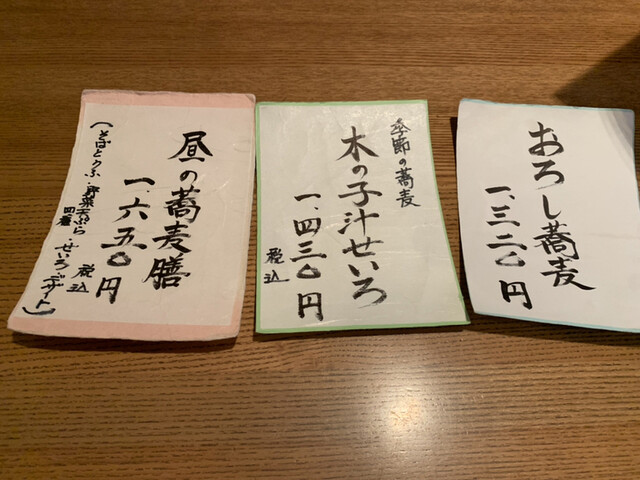 おろし蕎麦
一、三二〇円
季節の蕎麦
木の子汁せいろ
一、四三〇円
税込
昼の蕎麦膳
一、六五〇円
税込
(そばとうふ・野菜天ぷら・せいろ・デザート)
四種